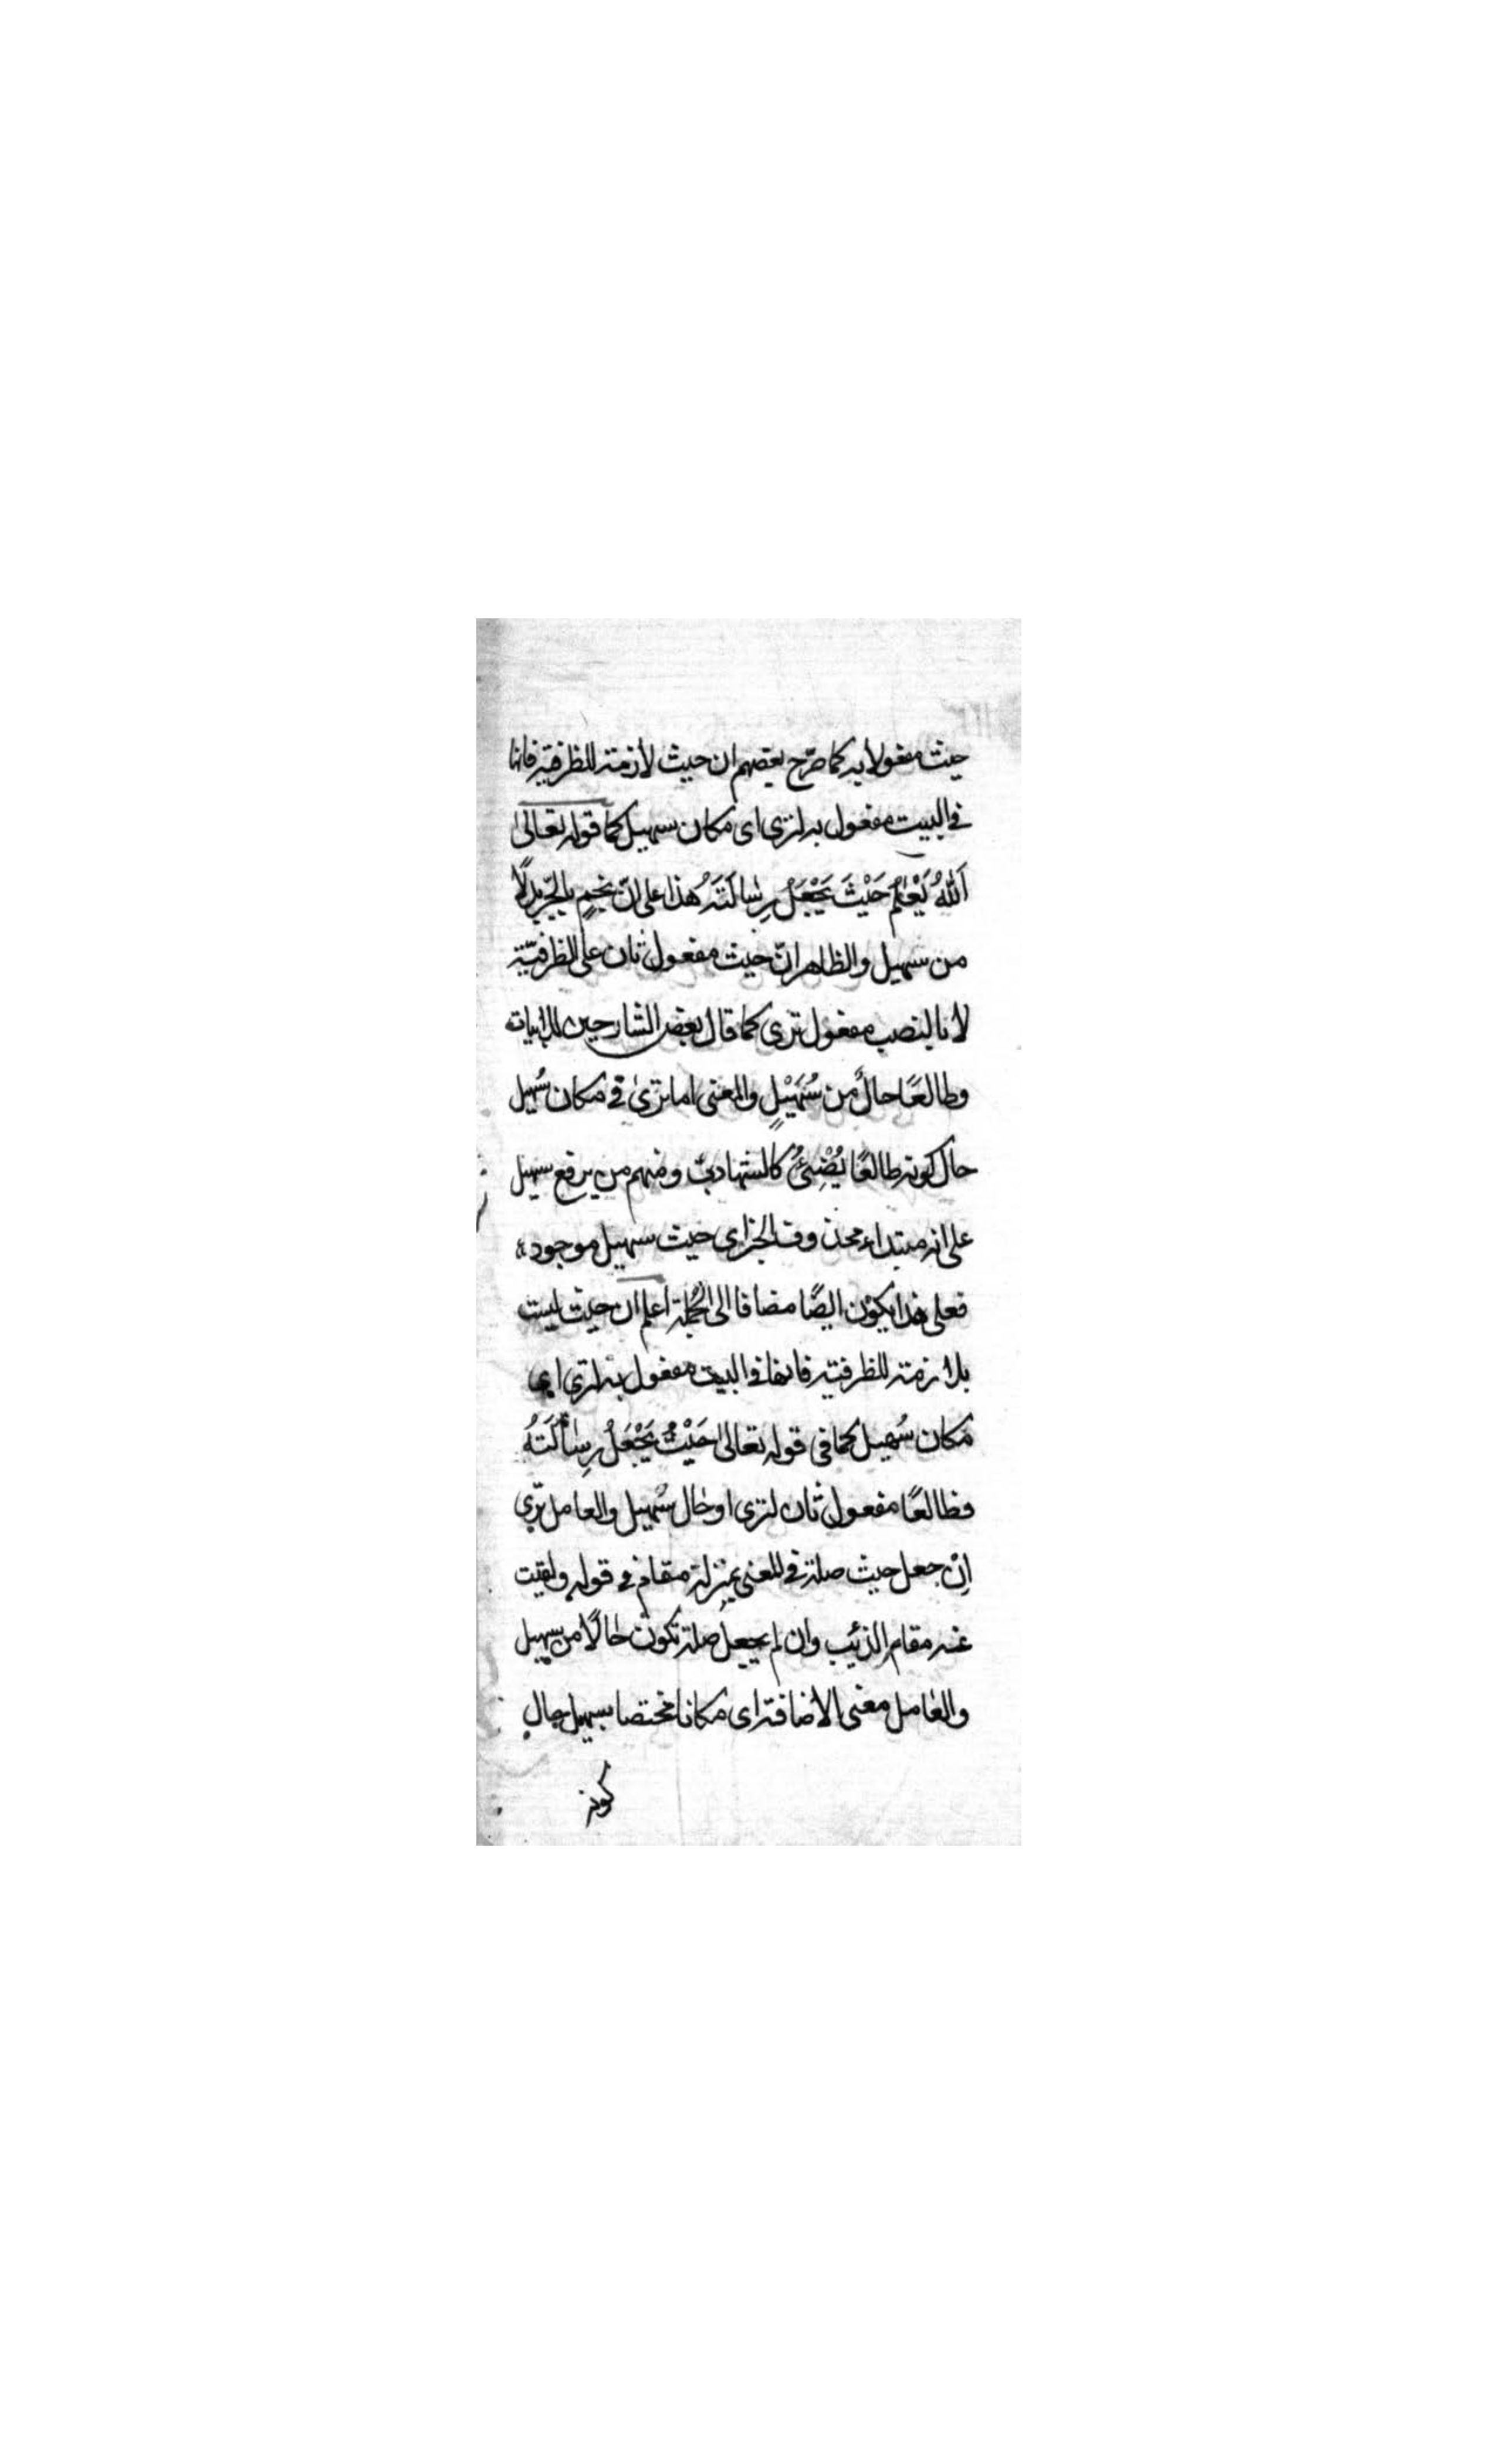 حيث مفعولا به كما صرّح بعضهم ان حيث لازمة للظرفية فانها
في البيت مفعول به لترى اى مكان سهيل كما قوله تعالى
اَللّٰهُ يَعْلَمُ حَيْثَ يَجْعَلُ رِسٰالَتَهُ هذا على انّ نجمٍ بالجّر بدلًا
من سهيل والظاهر انّ حيث مفعول ثان على الظرفيّة
لا نا لنصب مفعول ترى كما قال بعض الشارحين للابيات
وطالعًا حالٌ من سُهَيْلٍ والمعنى اما ترىٰ في مكان سُهيل
حال كونه طالعًا يُضْئُ كالشهاب ومنهم من يرفع سهيل
على انه مبتداء محذوف الخبر اى حيث سهيل موجود
فعلى هذا يكون ايضًا مضافا الى الجُملة اعلم ان حيث ليست
بلازمة للظرفية فانها في البيت مفعول به لترى اى
مكان سُهيل كما في قوله تعالىٰ حَيْثُ يَجْعَلُ رِسٰالَتَهُ
فطالعًا مفعول ثان لترى او حال سُهيل والعامل ترى
اِنْ جعل حيث صلة في المعنى بمنزلة مقام في قوله ولقيت
عنه مقام الذئب وان لم يجعل صلة تكون حالًا من سهيل
والعامل معنى الاضافة اى مكانا مختصا بسهيل حال
كونه